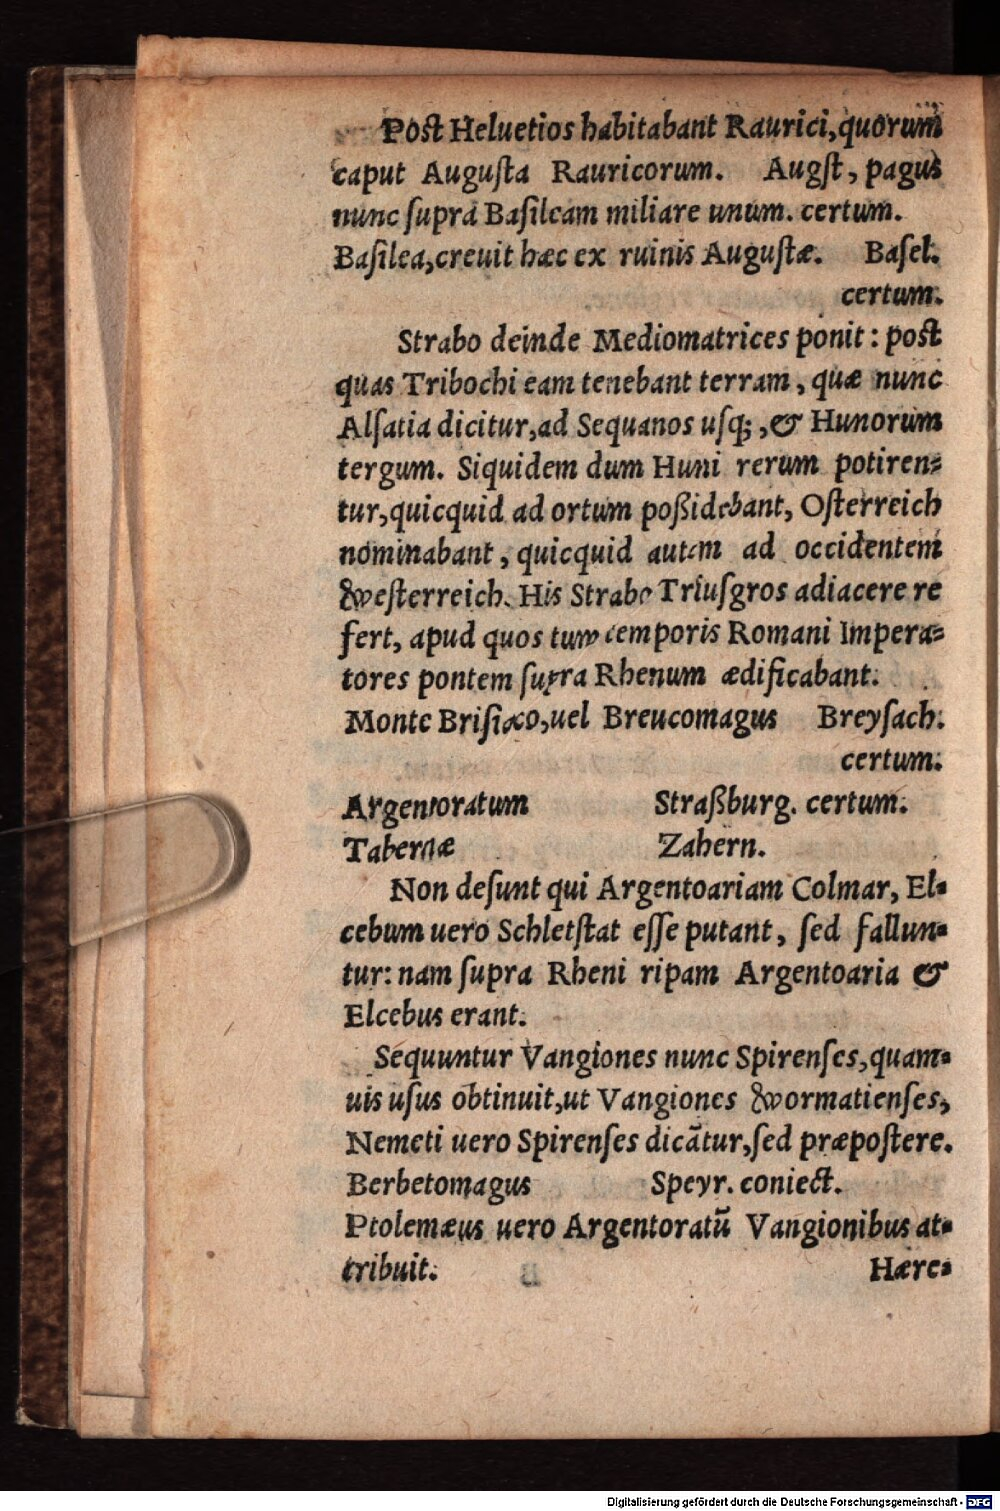 Post Heluetios habitabant Raurici, quorum
caput Augusta Rauricorum. Augſt, pagus
nunc ſupra Baſileam miliare unum. certum.
Baſilea, creuit hæc ex ruinis Auguſtæ. Baſel.
certum.
Strabo deinde Mediomatrices ponit: post
quas Tribochi eam tenebant terram, quæ nunc
Alſatia dicitur, ad Sequanos uſq;, & Hunorum
tergum. Siquidem dum Huni rerum potiren-
tur, quicquid ad ortum poßidebant, Oſterreich
nominabant, quicquid autem ad occidentem
Weſterreich. His Strabo Triuſgros adiacere re
fert, apud quos tum temporis Romani Impera-
tores pontem ſupra Rhenum ædificabant.
Monte Briſiaco, uel Breucomagus Breyſach.
certum.
Argentoratum Straßburg. certum.
Tabernæ Zabern.
Non deſunt qui Argentoariam Colmar, El-
cebum uero Schletſtat eſſe putant, ſed fallun-
tur: nam ſupra Rheni ripam Argentoaria &
Elcebus erant.
Sequuntur Vangiones nunc Spirenſes, quam-
uis uſus obtinuit, ut Vangiones Wormatienſes,
Nemeti uero Spirenſes dicãtur, ſed præpoſtere.
Berbetomagus Speyr. coniect.
Ptolemæus uero Argentoratũ Vangionibus at-
tribuit. Hære-
Digitalisierung gefördert durch die Deutsche Forschungsgemeinschaft - DFG